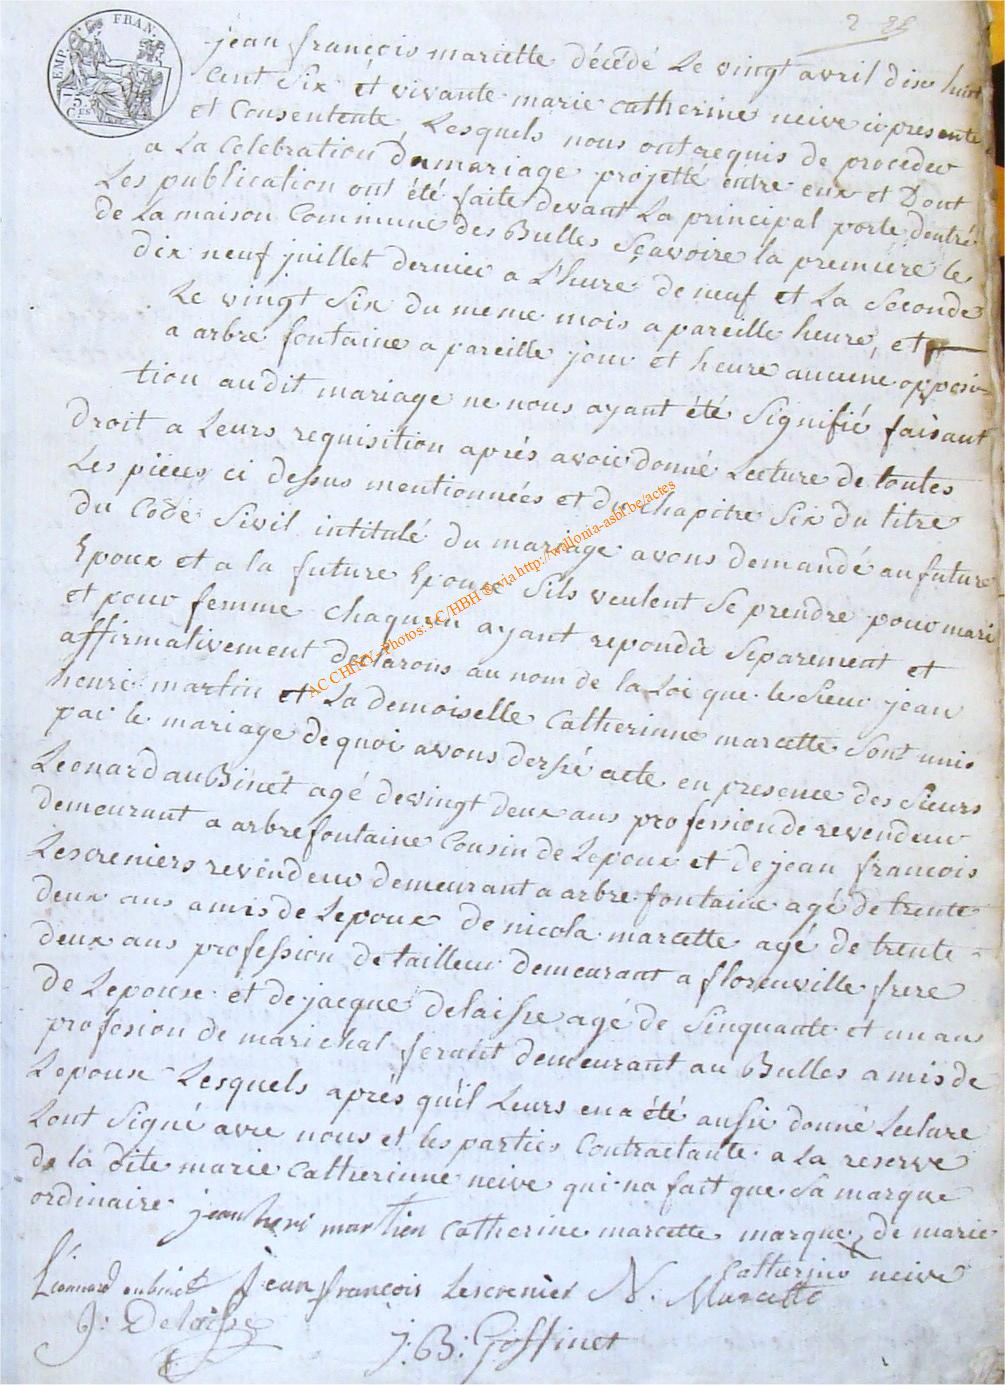 2 25
TIMP. EMP. FRAN.
75 CES
jean françois marcette décédé Le vingt avril dix huit
cent Six et vivante marie catherine neive ci presente
et Consentente Lesquels nous ont requis de proceder
a La Celebration du mariage projetté entre eux et Dont
Les publication ont été faite devant La principal porte dentré
de La maison Commune des Bulles Sçavoire la premiere le
dix neuf juillet dernier a L'hure de neuf et La Seconde
Le vingt Six du meme mois a pareille heure, et
a arbre fontaine a pareille jour et heure aucune opposi-
tion audit mariage ne nous ayant été Signifié faisant
droit a Leurs requisition aprés avoir donné Lecture de toutes
Les pièces ci dessus mentionnées et du chapitre Six du titre
du Code Sivil intitulé du mariage avons demandé au future
Epoux et a la future Epouse Sils veulent Se prendre pour mari
et pour femme chaqueu ayant repondu Séparement et
affirmativement declarons au nom de la Loi que le Sieur jean
henri martin et La demoiselle Catherinne marcette Sont unis
par le mariage de quoi avons dersé acte en presence des Sieurs
Leonard aubinet agé de vingt deux ans profession de revendeur
demeurant a arbrefontaine Cousin de Lepoux et de jean francois
Lescreniers revendeur demeurant a arbre fontaine agé de trente
deux ans amis de Lepoux de nicola marcette agé de trente-
deux ans profession de tailleur demeurant a florenville frere
de Lepouse et de jacque delaisse agé de Sinquante et un ans
profesion de marichal ferant demeurant au Bulles amis de
Lepouse Lesquels aprés qu'il Leurs en a été aussie donné Lecture
Lont Signé avec nous et les parties Contractante a La reserve
de la dite marie Catherinne neive qui na fait que Sa marque
ordinaire jean henri martien catherine marcette marque de marie
catherine neive
Léonard aubinet jean françois Lescrenier N. Marcette
J: Delaisse
J: B: Goffinet
AC CHINY - Photos: J.C/HBH ® via http://wallonia-asbl.be/actes